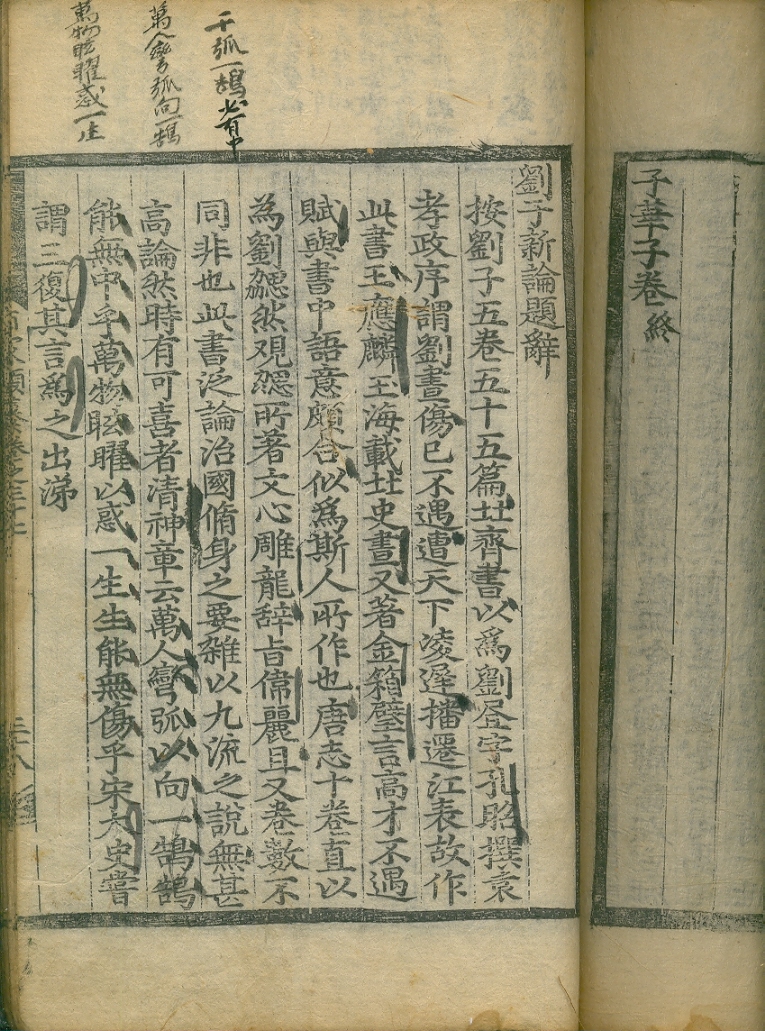 子華子卷終
千弧一鵠必有中
萬人彎弧向一鵠
萬物眩曜惑一生
劉子新論題辭
按劉子五卷五十五篇北齊書以爲劉晝字孔昭撰袁
孝政序謂劉晝傷已不遇遭天下凌遲播遷江表故作
此書王應麟玉海載北史晝又著金箱璧言高才不遇
賦與書中語意頗合似爲斯人所作也唐志十卷直以
為劉勰然观勰所著文心雕龍辞旨偉麗且又卷數不
同非也此書泛論治國脩身之要雜以九流之說無甚
高論然時有可喜者清神章云萬人彎弧以向一鵠鵠
能無中乎萬物眩曜以惑一生生能無傷乎宋太史嘗
謂三復其言爲之出涕